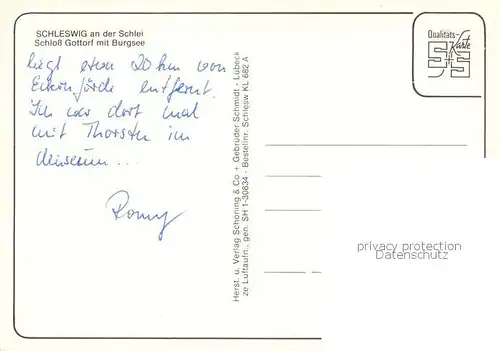 SCHLESWIG an der Schlei
Schloß Gottorf mit Burgsee
liegt etwa 20 km von
Eckernförde entfernt.
Ich war dort mal
mit Thorsten im
Museum...
Romy
Herst. u. Verlag Schöning & Co + Gebrüder Schmidt - Lübeck
ze Luftaufn., gen. SH 1-30834 - Bestellnr. Schlesw KL 682 A
Qualitäts-
Karte
privacy protection
Datenschutz